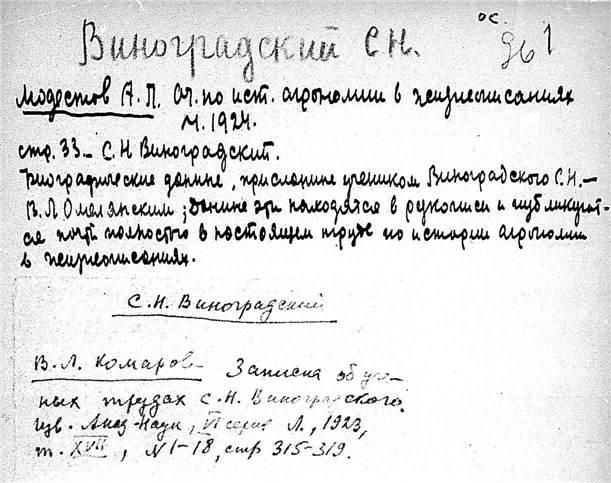 Виноградский С.Н.
ос.
961
Модестов А.П. Оч. по ист. агрономии в жизнеописаниях
М. 1924.
стр. 33 – С.Н Виноградский.
Биографические данные, присланные учеником Виноградского С.Н. –
В.Л Омелянским; данные эти находятся в рукописи и публикуют-
ся почти полностью в настоящем труде по истории агрономии
в жизнеописаниях.
С.Н. Виноградский
В.Л. Комаров Записка об уче-
ных трудах С.Н. Виноградского.
Изв. Акад-Наук, VI серия Л., 1923,
т. XVII, N 1-18, стр 315-319.